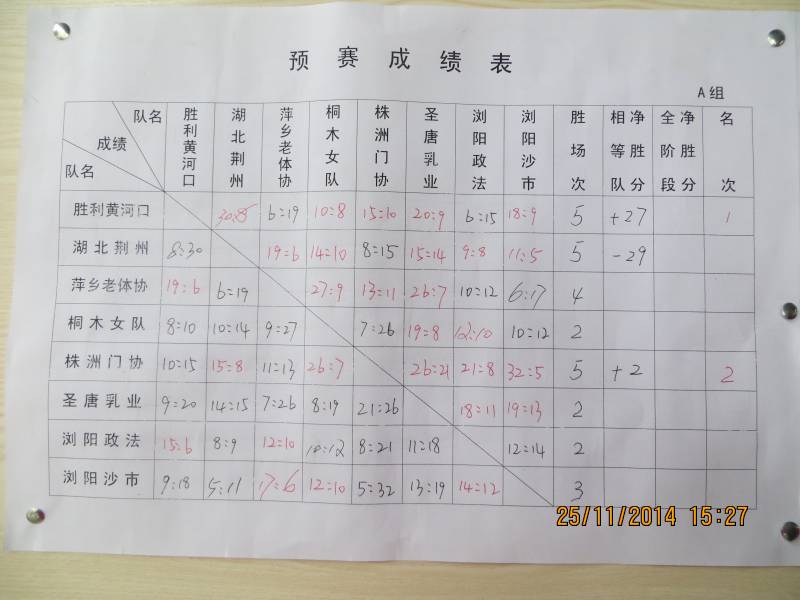 预赛成绩表
A组
队名 成绩 队名 胜利黄河口 湖北荆州 萍乡老体协 桐木女队 株洲门协 圣唐乳业 浏阳政法 浏阳沙市 胜场次 相等队净胜分 全阶段净胜分 名次
胜利黄河口 30:8 6=19 10=8 15=10 20=9 6=15 18=9 5 +27 1
湖北荆州 8=30 19=6 14=10 8=15 15=14 9=8 11=5 5 -29
萍乡老体协 19=6 6=19 27=9 13=11 26=7 10=12 6=17 4
桐木女队 8=10 10=14 9=27 7=26 19=8 12=10 10=12 2
株洲门协 10=15 15=8 11=13 26=7 26=21 21=8 32=5 5 +2 2
圣唐乳业 9=20 14=15 7=26 8=19 21=26 18=11 19=13 2
浏阳政法 15=6 8=9 12=10 10=12 8=21 11=18 12=14 2
浏阳沙市 9=18 5=11 17=6 12=10 5=32 13=19 14=12 3
25/11/2014 15:27